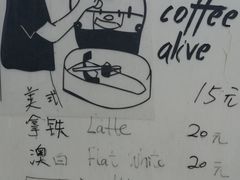 coffee
alive
美式 15元
拿铁 Latte 20元
澳白 Flat White 20元